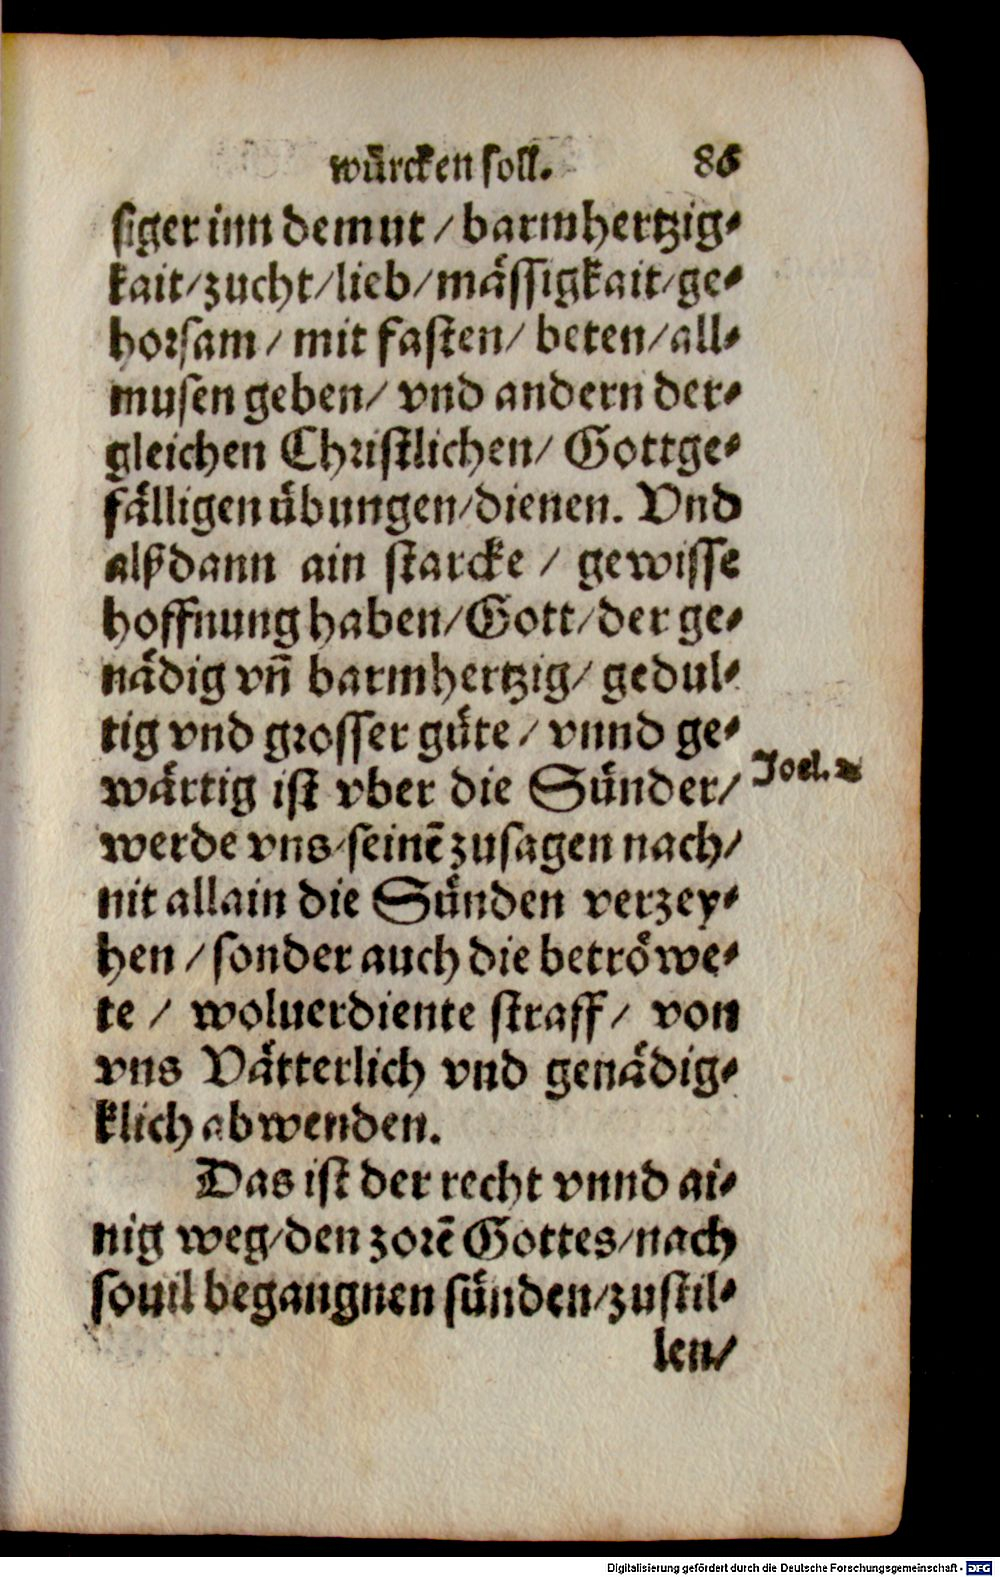 würcken soll. 86
siger inn demut / barmhertzig⸗
kait/zucht/lieb/mässigkait/ge⸗
horsam / mit fasten/ beten/all⸗
musen geben/ vnd andern der⸗
gleichen Christlichen/ Gottge⸗
fälligen übungen/dienen. Vnd
alßdann ain starcke / gewisse
hoffnung haben/Gott/der ge⸗
nädig vñ barmhertzig/ gedul⸗
tig vnd grosser güte / vnnd ge⸗
wärtig ist vber die Sünder/
Joel. 2
werde vns/seinē zusagen nach/
nit allain die Sünden verzey⸗
hen / sonder auch die betröwe⸗
te / woluerdiente straff / von
vns Vätterlich vnd genädig⸗
klich abwenden.
Das ist der recht vnnd ai⸗
nig weg/den zorē Gottes/nach
souil begangnen sünden/zustil⸗
len/
Digitalisierung gefördert durch die Deutsche Forschungsgemeinschaft - DFG